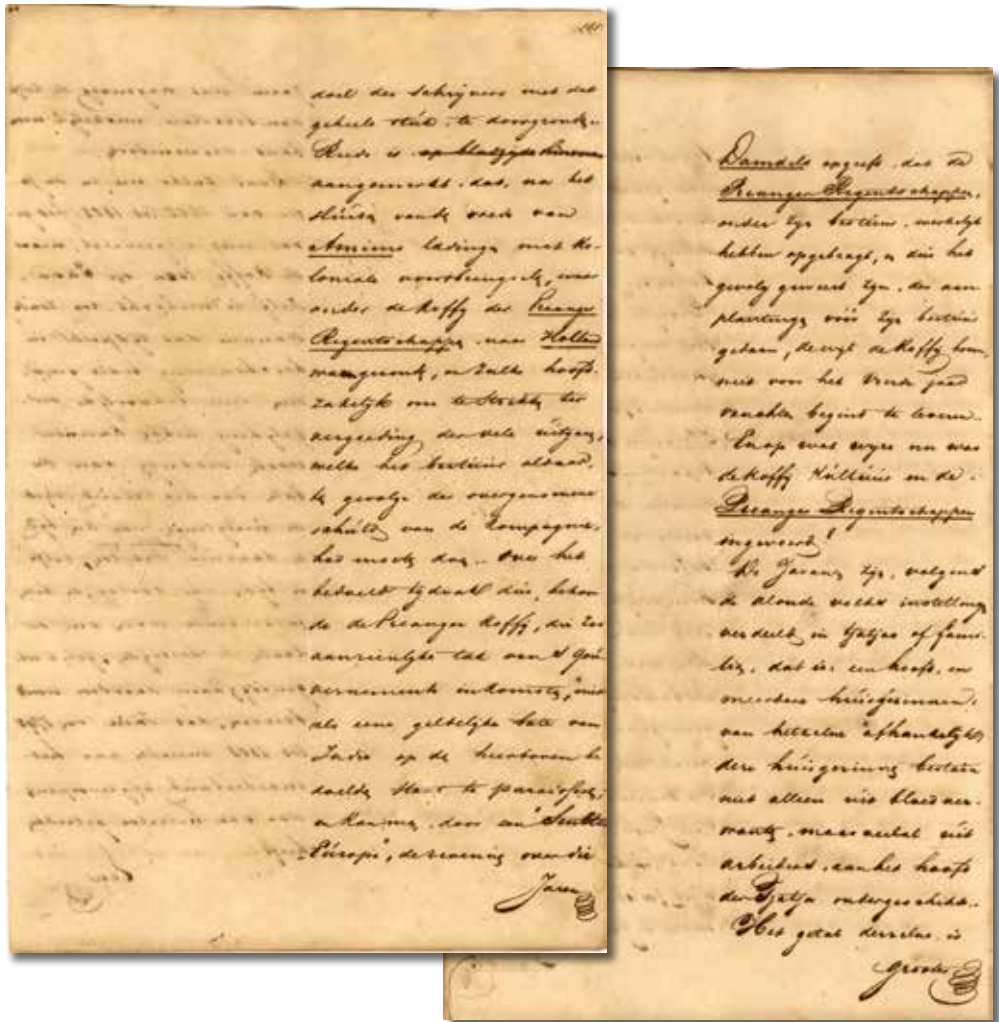 doel des Schrijvers met dit
geheele stuk te doorgronden.
Reeds is
aangemerkt, dat, na het
sluiten van de vrede van
Amiens ladingen met Ko-
loniale voortbrengselen, waar
onder de Koffij der Preanger
Regentschappen naar Holland
en zulks hoofd-
zakelijk om te strekken ter
vergoeding der vele uitgaven,
welke het bestuur aldaar,
te gevolge der overgenomene
schuld van de Compagnie,
had moeten doen. Over het
bedoeld tijdvak dus, behoor
de de Preanger Koffij, die zoo
aanzienlijke tak van 's Gou
vernements inkomsten, niet
als eene geldelijke bate van
Indie op de hierboven be
doelde staat te
en kan men, door een
Europa", de rekening over die
Jaren
Daendels opgeeft dat de
Preanger Regentschappen,
onder zijn bestuur, werkelijk
hebben opgebragt, en dus het
gevolg geweest zijn, der aan
plantingen vóór zijn bestuur
gedaan, dewijl de Koffij boom
niet voor het vierde jaar
vruchten begint te leveren.
En op wat wijze nu was
de Koffij Kultuur in de
Preanger Regentschappen
ingevoerd?
De Javanen zijn, volgens
de aloude volks instellingen
verdeeld in Tjatjas of fami-
lien, dat is: een hoofd, en
meerdere huisgezinnen,
van hetzelve afhankelijk;
deze huisgezinnen bestaan
niet alleen uit bloed ver-
wanten, maar veelal uit
arbeiders, aan het hoofd
der Tjatja ondergeschikt.
Het getal derzelve is
grooter